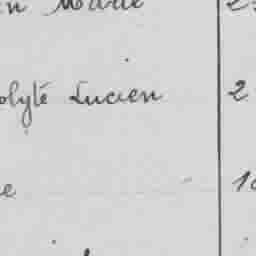 n Marie 2
olyte Lucien 2
e 10